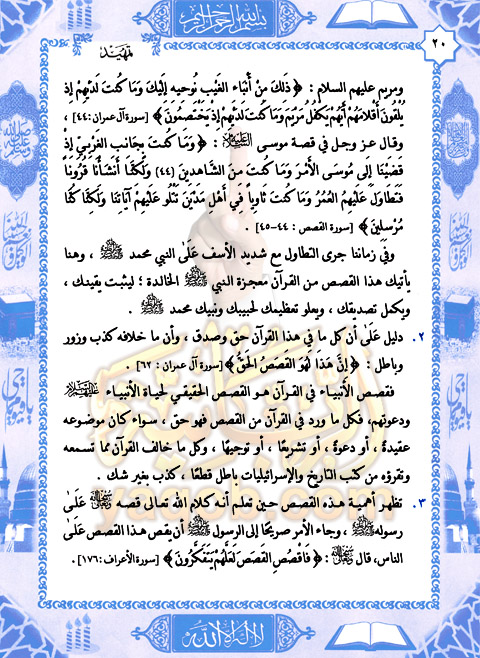 بسم الله الرحمن الرحيم
تمهيد
٢٠
ومريم عليهم السلام : ﴿ ذَلِكَ مِنْ أَنْبَاء الغَيْبِ نُوحِيهِ إِلَيْكَ وَمَا كُنتَ لَدَيْهِمْ إِذ
يُلْقُونَ أَقْلَامَهُمْ أَيُّهُمْ يَكْفُلُ مَرْيَمَ وَمَا كُنتَ لَدَيْهِمْ إِذْ يَخْتَصِمُونَ ﴾ [سورة آل عمران : ٤٤] ،
وقال عز وجل في قصة موسى : ﴿ وَمَا كُنتَ بِجَانِبِ الغَرْبِيِّ إِذْ
قَضَيْنَا إِلَى مُوسَى الأَمْرَ وَمَا كُنتَ مِنَ الشَّاهِدِينَ (٤٤) وَلَكِنَّا أَنشَأْنَا قُرُوناً
فَتَطَاوَلَ عَلَيْهِمُ العُمُرُ وَمَا كُنتَ ثَاوِياً فِي أَهْلِ مَدْيَنَ تَتْلُو عَلَيْهِمْ آيَاتِنَا وَلَكِنَّا كُنَّا
مُرْسِلِينَ ﴾ [سورة القصص : ٤٤-٤٥] .
وفي زماننا جرى التطاول مع شديد الأسف عَلَى النبي محمد ﷺ ، وهنا
يأتيك هذا القصص من القرآن معجزة النبي ﷺ الخالدة ؛ ليثبت يقينك ،
ويكمل تصديقك ، ويعلو تعظيمك لحبيبك ونبيك محمد ﷺ .
٢ . دليل عَلَى أن كل ما في هذا القرآن حق وصدق ، وأن ما خلافه كذب وزور
وباطل : ﴿ إِنَّ هَذَا لَهُوَ القَصَصُ الحَقُّ ﴾ [سورة آل عمران : ٦٢] .
فقصص الأنبياء في القرآن هو القصص الحقيقي لحياة الأنبياء
ودعوتهم، فكل ما ورد في القرآن من القصص فهو حق ، سواء كان موضوعه
عقيدةً ، أو دعوةً ، أو تشريعًا ، أو توجيهًا ، وكل ما خالف القرآن مما تسمعه
وتقرؤه من كتب التاريخ والإسرائيليات باطل قطعًا ، كذب بغير شك .
٣ . تظهر أهمية هذه القصص حين تعلم أنه كلام الله تعالى قصه عَلَى
رسوله ﷺ ، وجاء الأمر صريحًا إلى الرسول ﷺ أن يقص هذا القصص عَلَى
الناس، قال : ﴿ فَاقْصُصِ القَصَصَ لَعَلَّهُمْ يَتَفَكَّرُونَ ﴾ [سورة الأعراف : ١٧٦] .
لا إله إلا الله